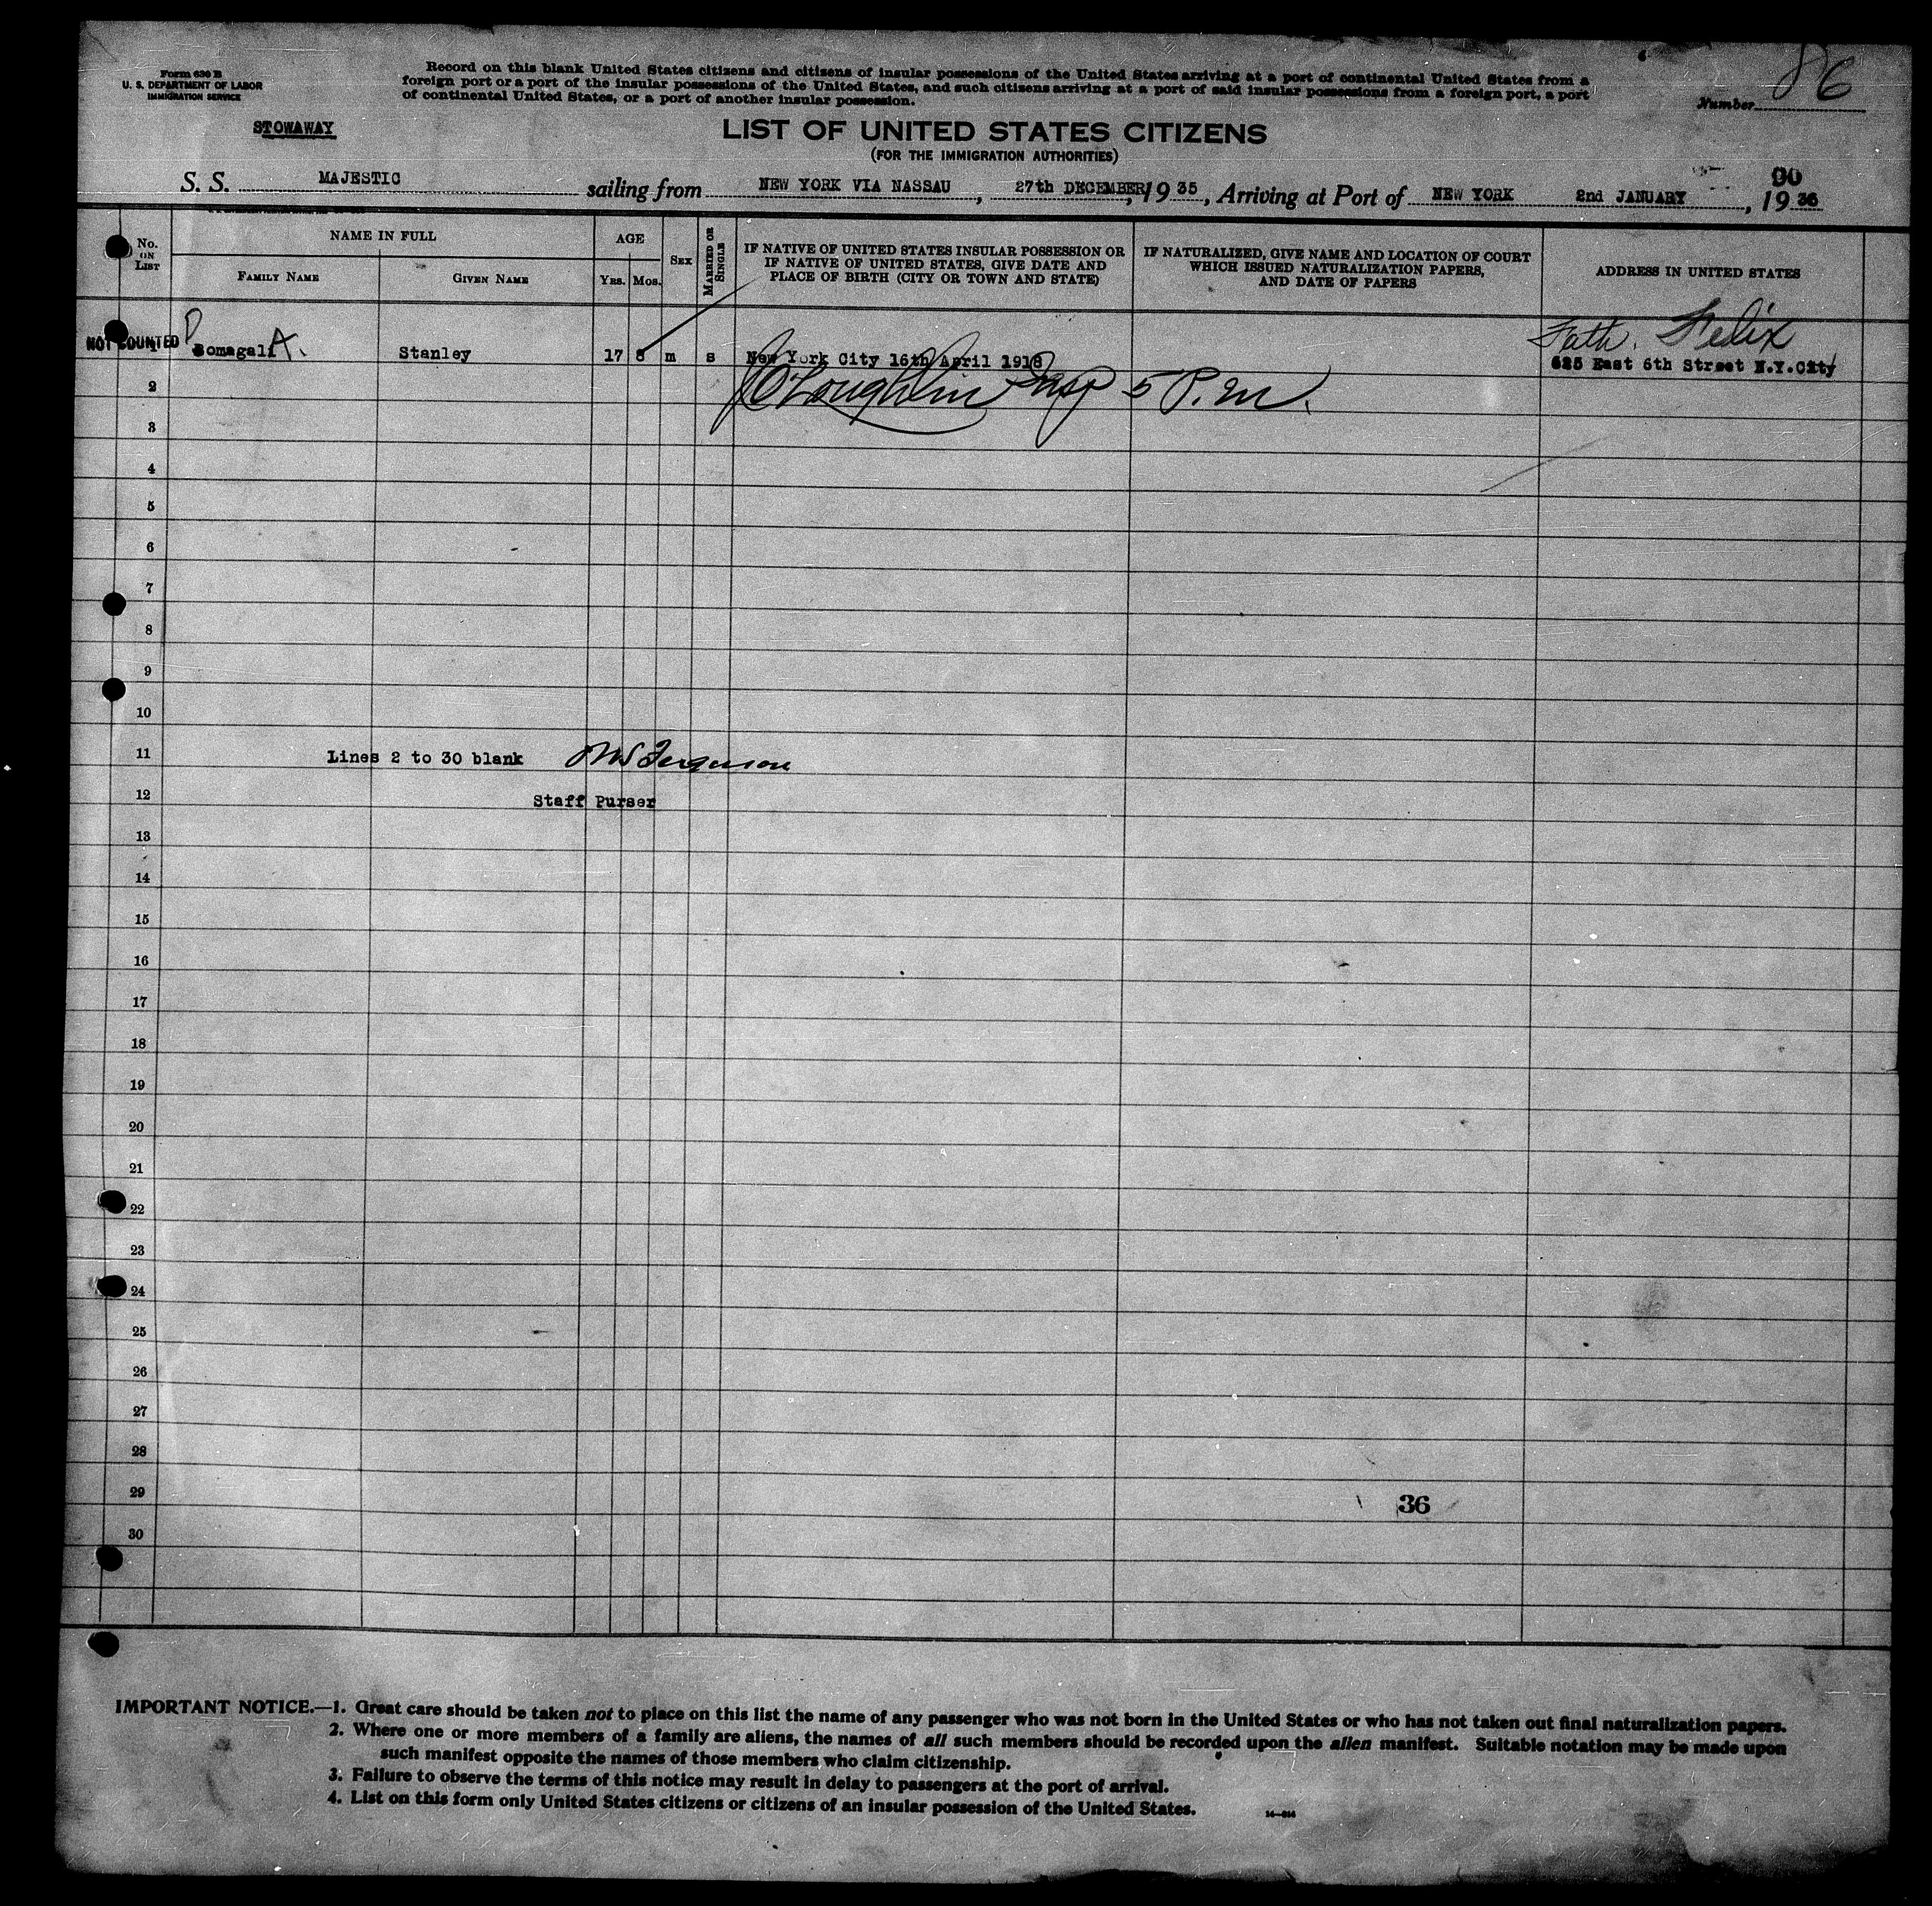 Form 630 B
U. S. DEPARTMENT OF LABOR
IMMIGRATION SERVICE
Record on this blank United States citizens and citizens of insular possessions of the United States arriving at a port of continental United States from a
foreign port or a port of the insular possessions of the United States, and such citizens arriving at a port of said insular possessions from a foreign port, a port
of continental United States, or a port of another insular possession.
Number 86
STOWAWAY
LIST OF UNITED STATES CITIZENS
(FOR THE IMMIGRATION AUTHORITIES)
90
S. S. MAJESTIC sailing from NEW YORK VIA NASSAU, 27th DECEMBER, 1935, Arriving at Port of NEW YORK 2nd JANUARY, 1936
No. ON LIST
NAME IN FULL
FAMILY NAME
GIVEN NAME
AGE
YRS. MOS.
SEX
MARRIED OR SINGLE
IF NATIVE OF UNITED STATES INSULAR POSSESSION OR
IF NATIVE OF UNITED STATES, GIVE DATE AND
PLACE OF BIRTH (CITY OR TOWN AND STATE)
IF NATURALIZED, GIVE NAME AND LOCATION OF COURT
WHICH ISSUED NATURALIZATION PAPERS,
AND DATE OF PAPERS
ADDRESS IN UNITED STATES
Fath. Felix
NOT COUNTED
1 Stanley 17 8 m s New York City 16th April 1918 625 East 6th Street N.Y.City
J O'Loughlin Insp 5 P.M.
2
3
4
5
6
7
8
9
10
11 Lines 2 to 30 blank Ferguson
12 Staff Purser
13
14
15
16
17
18
19
20
21
22
23
24
25
26
27
28
29 36
30
IMPORTANT NOTICE.—1. Great care should be taken not to place on this list the name of any passenger who was not born in the United States or who has not taken out final naturalization papers.
2. Where one or more members of a family are aliens, the names of all such members should be recorded upon the alien manifest. Suitable notation may be made upon
such manifest opposite the names of those members who claim citizenship.
3. Failure to observe the terms of this notice may result in delay to passengers at the port of arrival.
4. List on this form only United States citizens or citizens of an insular possession of the United States.